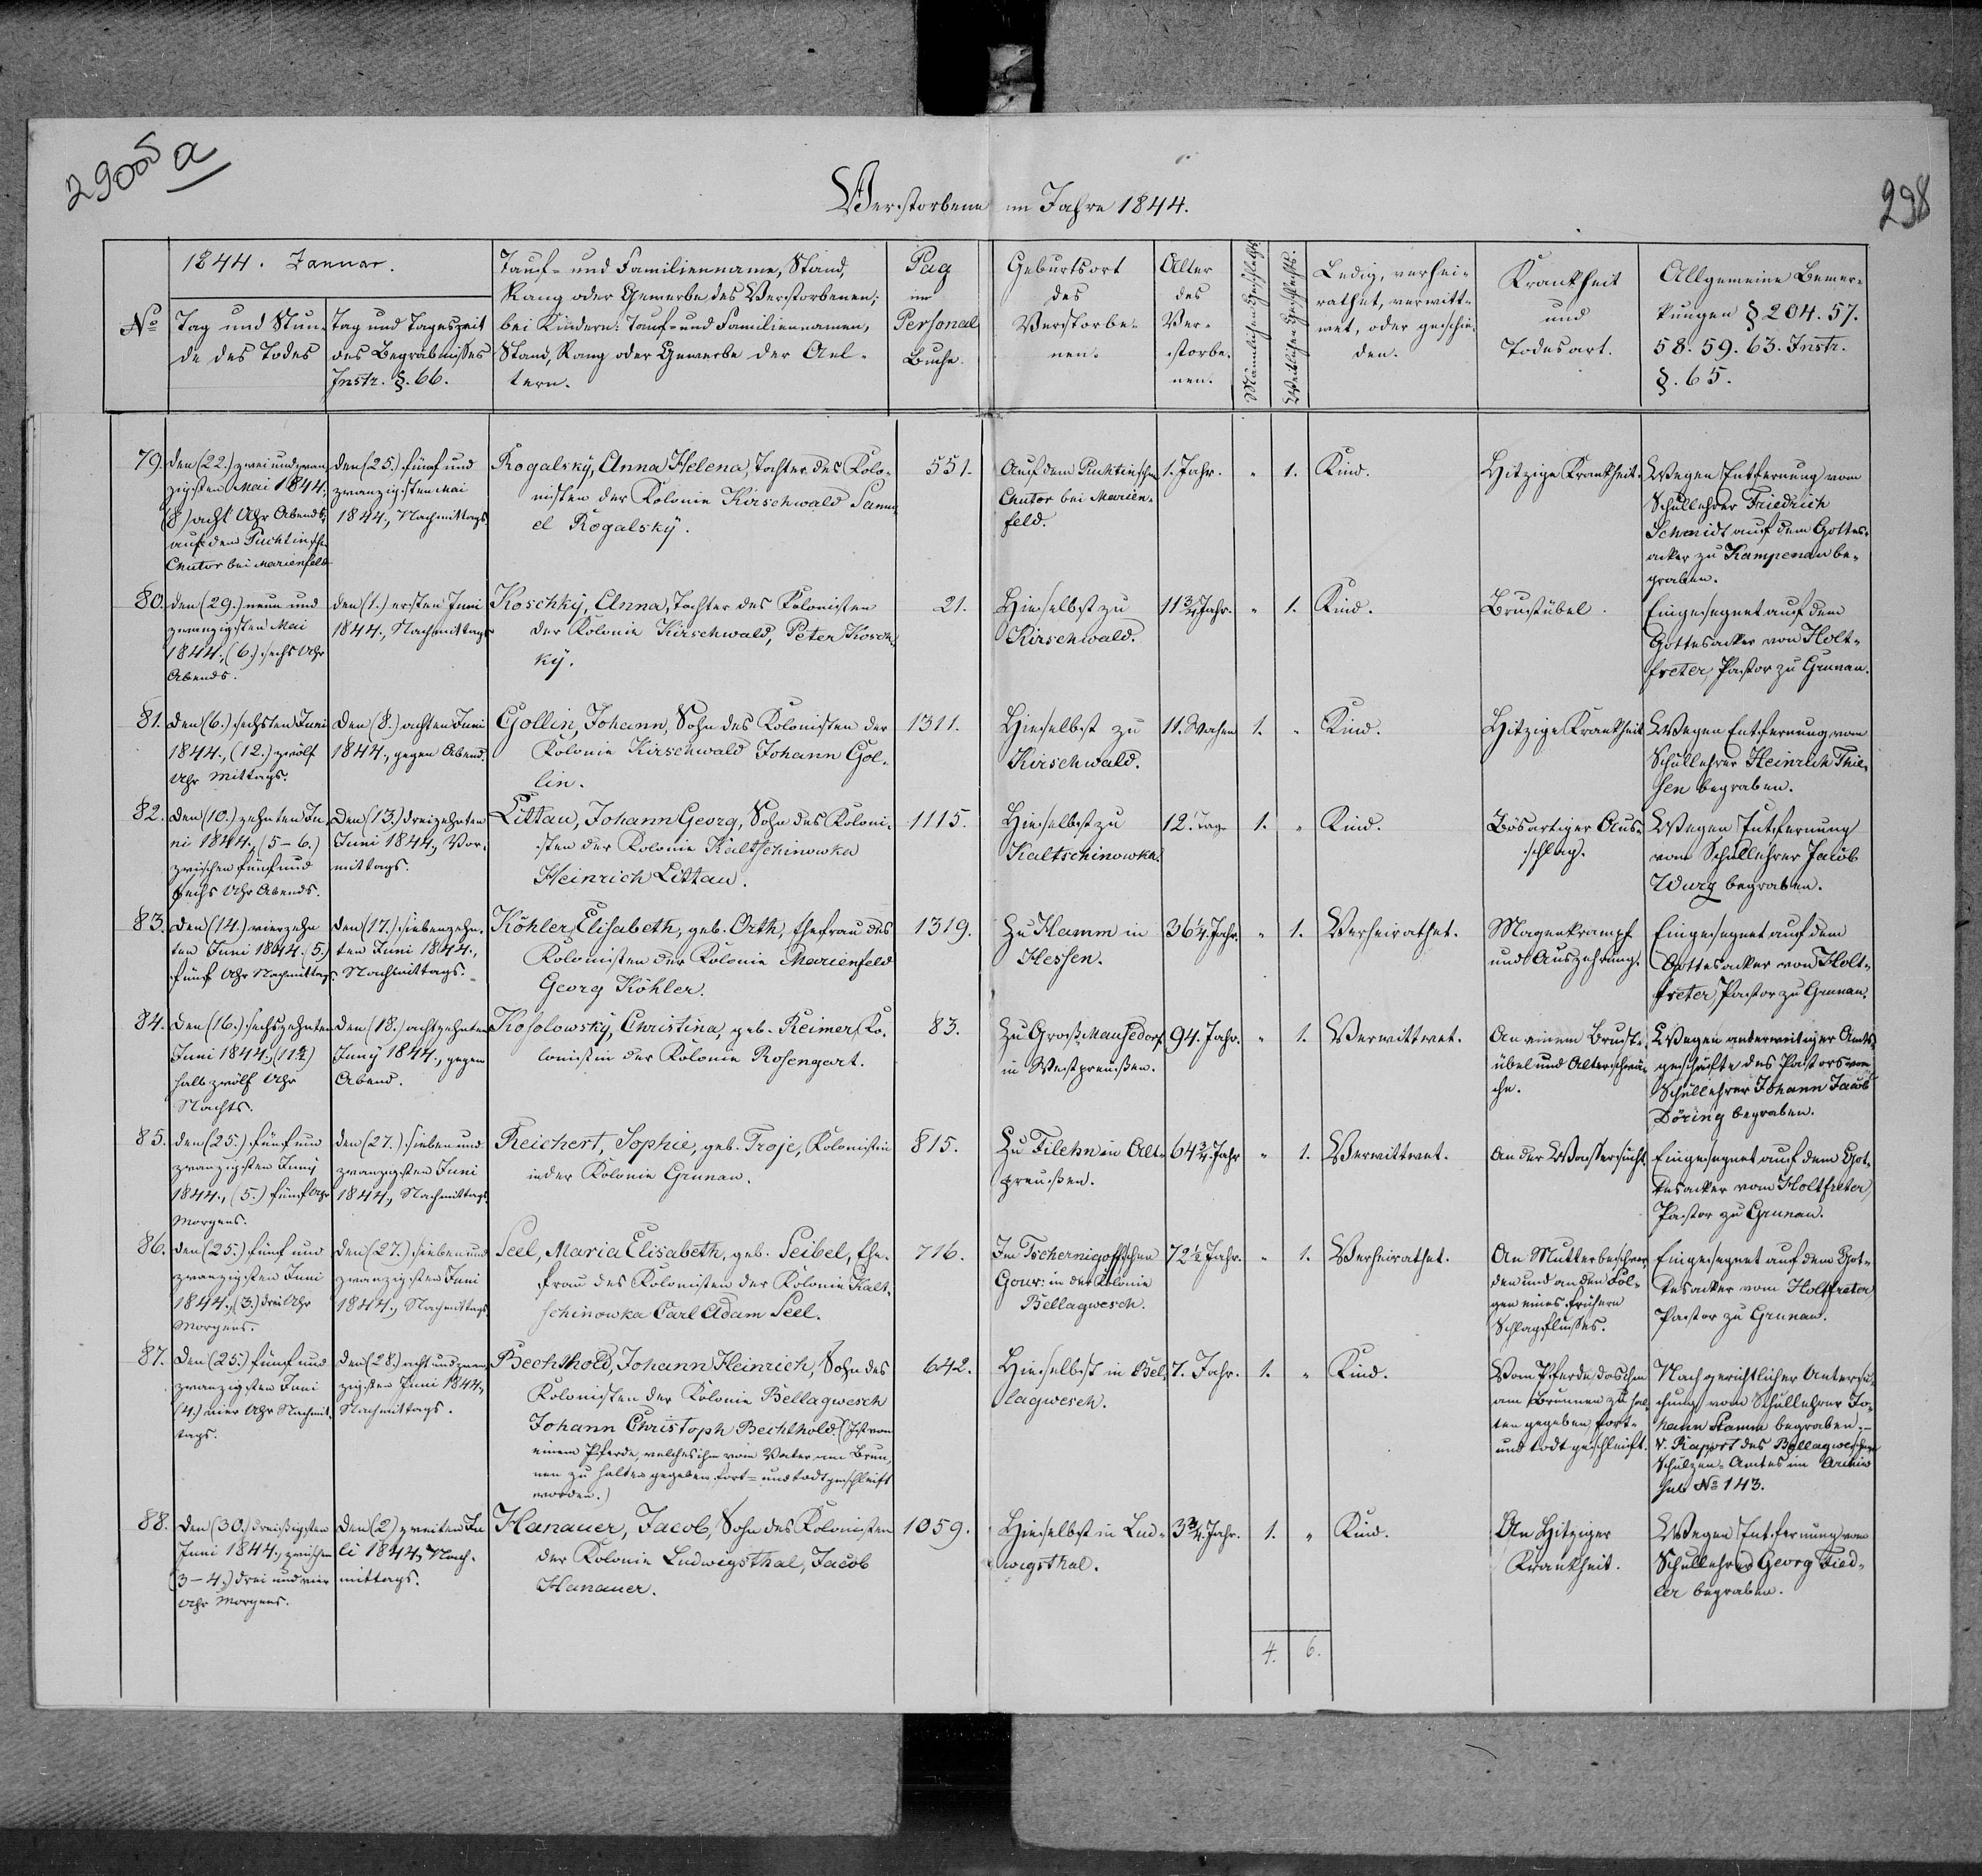 29005 a
298
Verstorbene im Jahre 1844.
No
1844. Januar.
Tag und Stun-
de des Todes
Tag und Tageszeit
des Begräbnisses
Instr. §. 66.
Tauf- und Familienname, Stand,
Rang oder Gewerbe des Verstorbenen;
bei Kindern: Tauf- und Familiennamen,
Stand, Rang oder Gewerbe der Ael-
tern.
Pag
im
Personal
Buche.
Geburtsort
des
Verstorbe-
nen.
Alter
des
Ver-
storbe-
nen.
Männlichen Geschlechts.
Weiblichen Geschlechts.
Ledig, verhei-
rathet, verwitt-
wet, oder geschie-
den.
Krankheit
und
Todesart.
Allgemeine Bemer-
kungen §. 204. 57.
58. 59. 63. Instr.
§. 65.
79.
den (22.) zwei und zwan-
zigsten Mai 1844.,
(8) acht Uhr Abends,
auf dem Puchtinschen
Chutor bei Marienfeld
den (25.) fünf und
zwanzigsten Mai
1844., Nachmittags
Rogalsky, Anna Helena, Tochter des Kolo-
nisten der Kolonie Kirschwald Samu-
el Rogalsky.
551.
Auf dem Puchtinschen
Chutor bei Marien-
feld.
1. Jahr.
"
1.
Kind.
Hitzige Krankheit.
Wegen Entfernung vom
Schullehrer Friedrich
Schmidt auf dem Gottes-
acker zu Kampenau be-
graben.
80.
den (29.) neun und
zwanzigsten Mai
1844., (6.) sechs Uhr
Abends.
den (1.) ersten Juni
1844., Nachmittags
Koschky, Anna, Tochter des Kolonisten
der Kolonie Kirschwald, Peter Kosch-
ky.
21.
Hieselbst zu
Kirschwald.
11 3/4 Jahr.
"
1.
Kind.
Brustübel.
Eingesegnet auf dem
Gottesacker von Holt-
freter, Pastor zu Grunau.
81.
den (6.) sechsten Juni
1844., (12.) zwölf
Uhr Mittags.
den (8.) achten Juni
1844., gegen Abend.
Gollin, Johann, Sohn des Kolonisten der
Kolonie Kirschwald Johann Gol-
lin.
1311.
Hieselbst zu
Kirschwald.
11. Wochen
1.
"
Kind.
Hitzige Krankheit
Wegen Entfernung vom
Schullehrer Heinrich Thie-
sen begraben.
82.
den (10.) zehnten Ju-
ni 1844., (5-6.)
zwischen fünf und
sechs Uhr Abends.
den (13.) dreizehnten
Juni 1844., Vor-
mittags.
Littau, Johann Georg, Sohn des Koloni-
sten der Kolonie Kaltschinowka
Heinrich Littau.
1115.
Hieselbst zu
Kaltschinowka.
12. Tage
1.
"
Kind.
Bösartiger Aus-
schlag.
Wegen Entfernung
vom Schullehrer Jacob
Wurz begraben.
83.
den (14.) vierzehn
ten Juni 1844. (5.)
fünf Uhr Nachmittags.
den (17.) siebenzehn-
ten Juni 1844.,
Nachmittags.
Köhler, Elisabeth, geb. Orth, Ehefrau des
Kolonisten der Kolonie Marienfeld
Georg Köhler.
1319.
Zu Hamm in
Hessen.
36 1/4. Jahr.
"
1.
Verheirathet.
Magenkrampf
und Auszehrung.
Eingesegnet auf dem
Gottesacker von Holt-
freter, Pastor zu Grunau.
84.
den (16.) sechszehnten
Juni 1844., (11 1/2)
halb zwölf Uhr
Nachts.
den (18.) achtzehnten
Juny 1844., gegen
Abend.
Kosolowsky, Christina, geb. Reimer, Ko-
lonistin der Kolonie Rosengart.
83.
Zu Groß Mausedorf
in Westpreußen.
94. Jahr.
"
1.
Verwittwet.
An einem Brust-
übel und Altersschwä-
che.
Wegen anderweitiger Amts-
geschäfte des Pastors vom
Schullehrer Johann Jacob
Döring begraben.
85.
den (25.) fünf und
zwanzigsten Juny
1844., (5.) fünf Uhr
Morgens.
den (27.) sieben und
zwanzigsten Juni
1844., Nachmittags
Reichert, Sophie, geb. Troje, Kolonistin
in der Kolonie Grunau.
815.
Zu Filehn in Alt-
preußen.
64 3/4. Jahr
"
1.
Verwittwet.
An der Wassersucht.
Eingesegnet auf dem Got-
tesacker vom Holtfreter,
Pastor zu Grunau.
86.
den (25.) fünf und
zwanzigsten Juni
1844., (3.) drei Uhr
Morgens.
den (27.) sieben und
zwanzigsten Juni
1844., Nachmittags
Seel, Maria Elisabeth, geb. Seibel, Ehe-
frau des Kolonisten der Kolonie Kalt-
schinowka Carl Adam Seel.
716.
Im Tschernigoffschen
Gouv: in der Kolonie
Bellagwesch.
72 1/2 Jahr.
"
1.
Verheirathet.
An Mutterbeschwer
den und an den Fol-
gen eines frühern
Schlagflusses.
Eingesegnet auf dem Got-
tesacker vom Holtfreter
Pastor zu Grunau.
87.
den (25.) fünf und
zwanzigsten Juni
(4.) vier Uhr Nachmit-
tags.
den (28.) acht und zwan-
zigsten Juni 1844.,
Nachmittags.
Bechthold, Johann Heinrich, Sohn des
Kolonisten der Kolonie Bellagwesch
Johann Christoph Bechthold. (Ist von
einem Pferde, welches ihm vom Vater am Brun-
nen zu halten gegeben, fort- und todt geschleift
worden.)
642.
Hieselbst in Bel-
lagwesch.
7. Jahr.
1.
"
Kind.
Vom Pferde, das ihm
am Brunnen zu hal-
ten gegeben, fort-
und todt geschleift.
Nach gerichtlicher Untersu-
chung vom Schullehrer Jo-
hann Stamm begraben. -
v. Rapport des Bellagweschen
Schulzen-Amtes im Archiv
sub No 143.
88.
den (30.) dreißigsten
Juni 1844., zwischen
(3-4.) drei und vier
Uhr Morgens.
den (2) zweiten Ju
li 1844, Nach-
mittags.
Hanauer, Jacob, Sohn des Kolonisten
der Kolonie Ludwigsthal, Jacob
Hanauer.
1059.
Hieselbst in Lud-
wigsthal.
3 3/4. Jahr.
1.
"
Kind.
An Hitziger
Krankheit.
Wegen Entfernung vom
Schullehrer Georg Fied-
ler begraben.
4.
6.